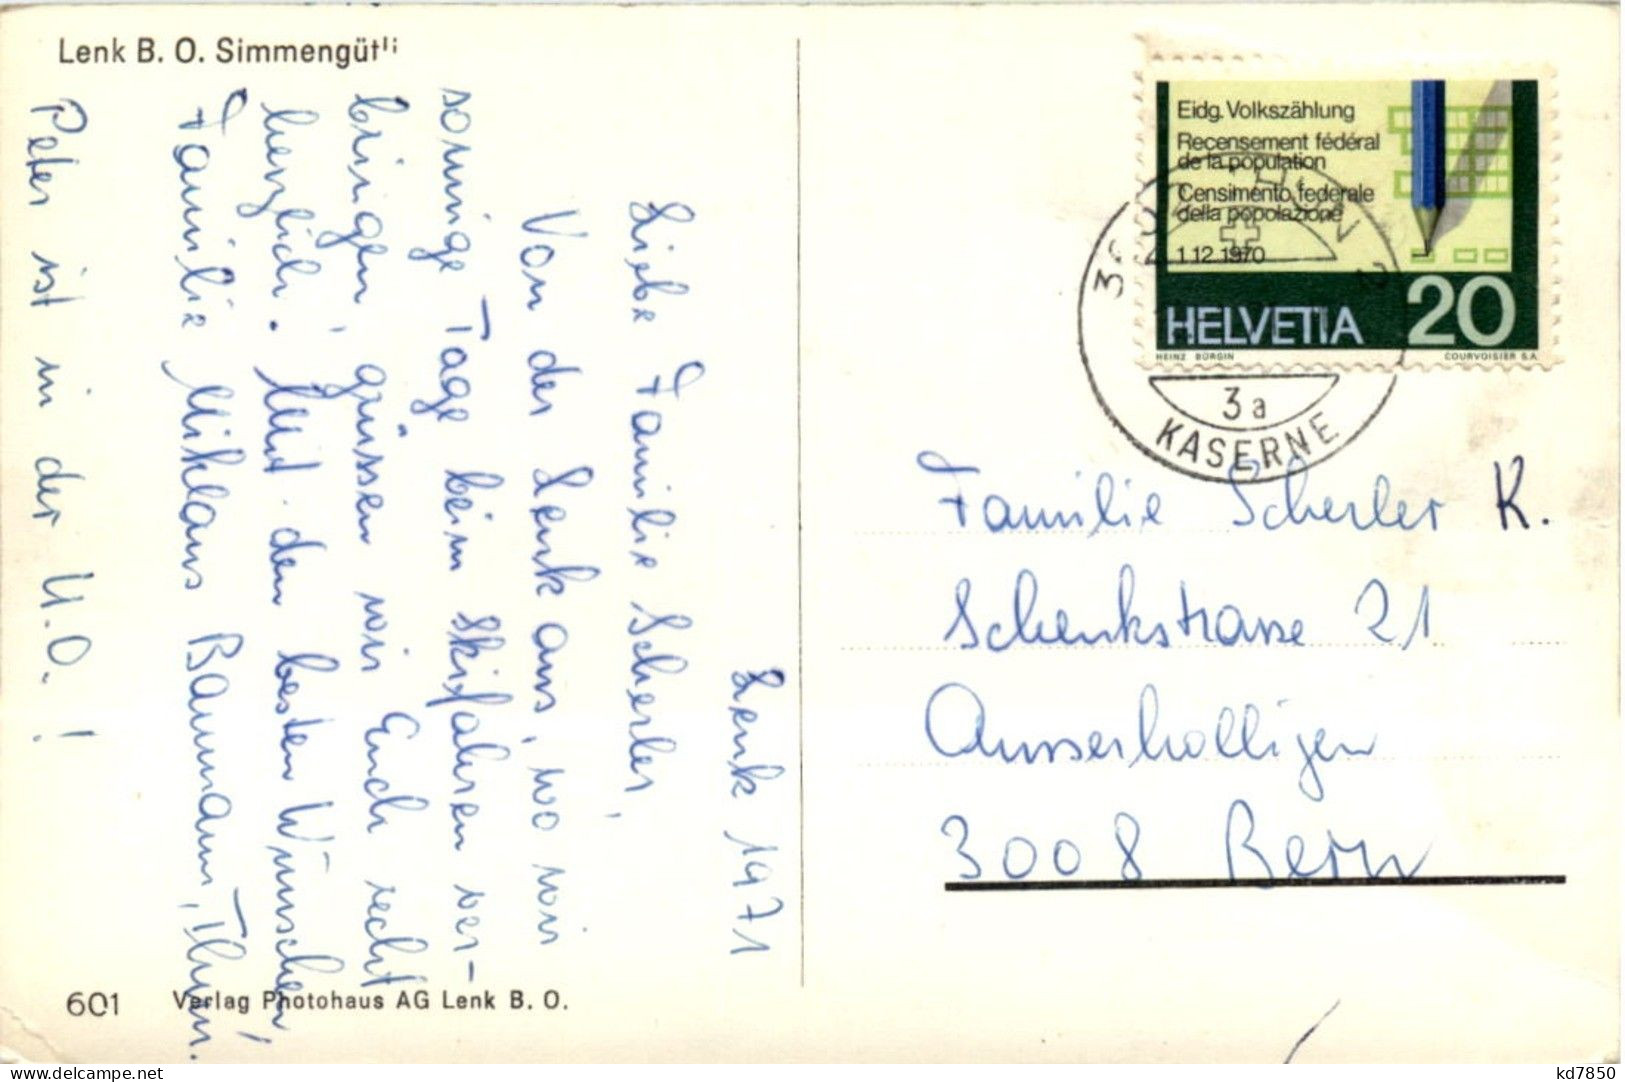 Lenk B. O. Simmengütli
Lenk 1971
Liebe Familie Scherler,
Von der Lenk aus, wo wir
sonnige Tage beim Skifahren ver-
bringen, grüssen wir Euch recht
herzlich. Mit den besten Wünschen,
Familie Niklaus Baumann, Thun.
Peter ist in der U.O. !
601 Verlag Photohaus AG Lenk B. O.
Eidg. Volkszählung
Recensement fédéral
de la population
Censimento federale
della popolazione
1.12.1970
HELVETIA 20
HEINZ BÜRGIN COURVOISIER S.A.
3a
KASERNE
Familie Scherler K.
Schenkstrasse 21
Ausserholligen
3008 Bern
kd7850